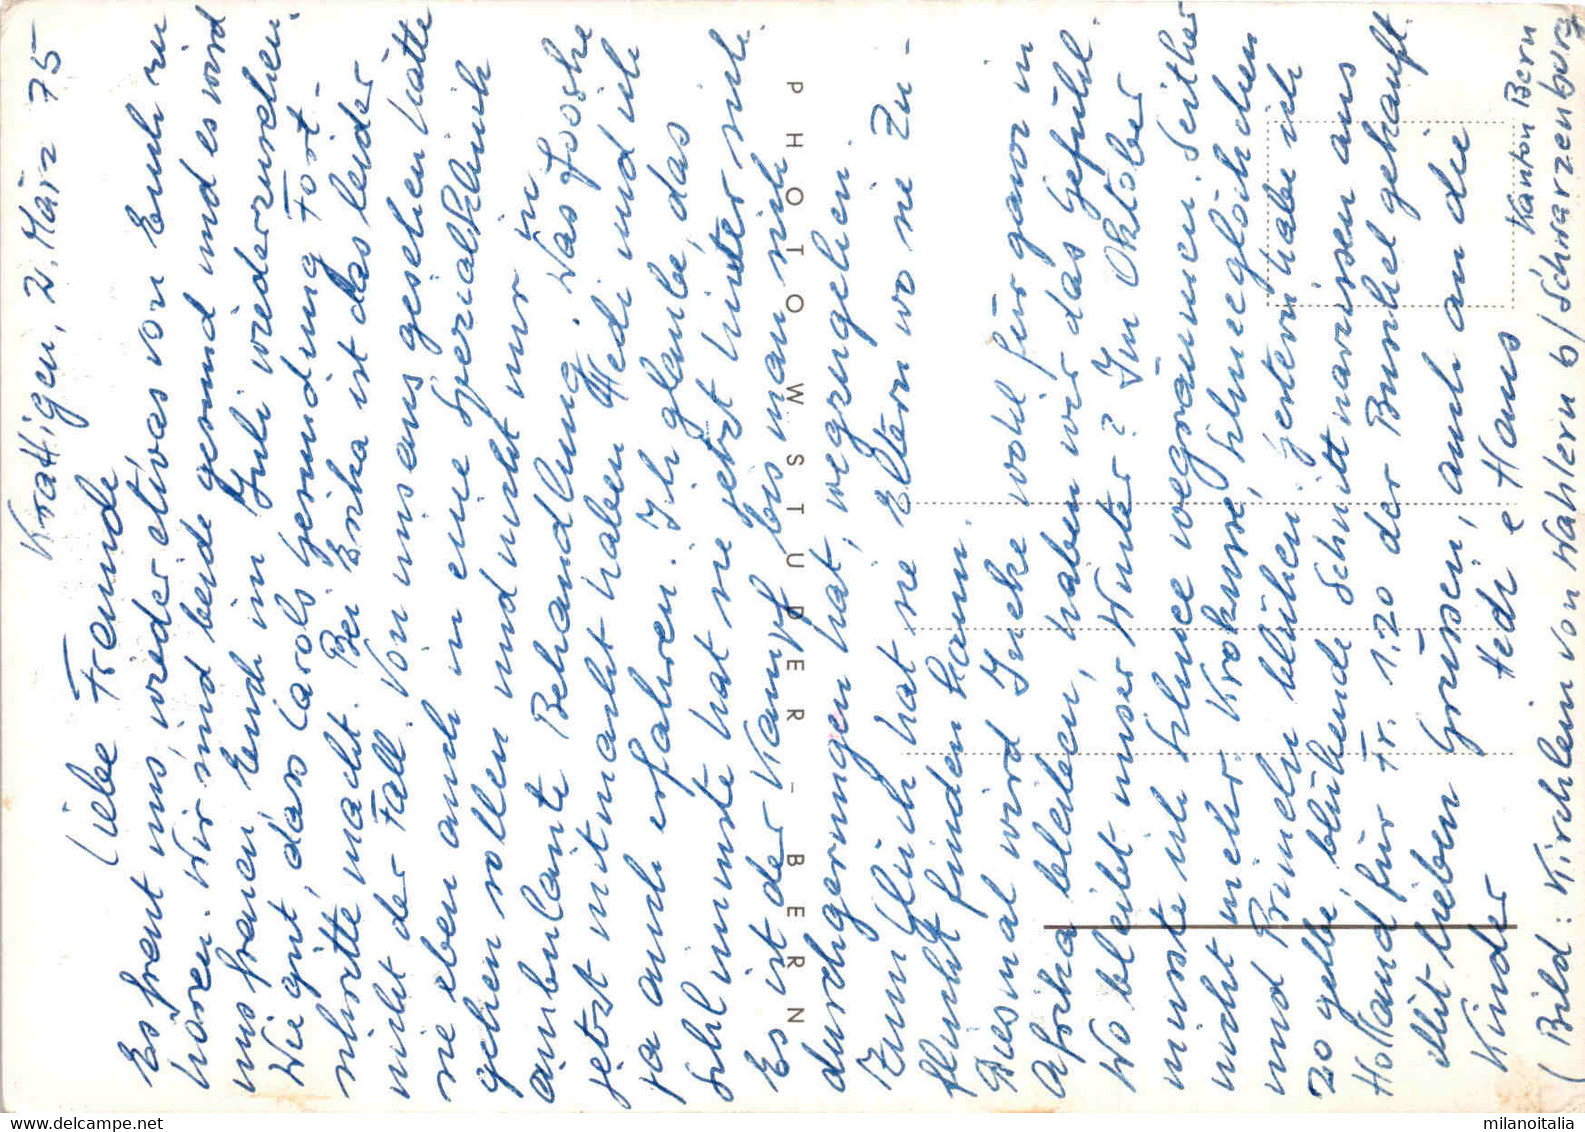 Krattigen, 2. März 75
Liebe Freunde,
Es freut uns, wieder etwas von Euch zu
hören. Wir sind beide gesund und es wird
uns freuen, Euch im Juli wiederzusehen.
Wie gut, dass Carols Gesundung Fort-
schritte macht. Bei Erika ist das leider
nicht der Fall. Von uns aus gesehen hätte
sie eben auch in eine Spezialklinik
gehen sollen und nicht nur in
ambulante Behandlung. Was Jooske
jetzt mitmacht haben Hedi und ich
ja auch erfahren. Ich glaube, das
Schlimmste hat sie jetzt hinter sich.
Es ist der Kampf bis man sich
durchgerungen hat, wegzugehen.
Zum Glück hat sie Eltern wo sie Zu-
flucht finden kann.
Diesmal wird Ineke wohl für ganz in
Afrika bleiben, haben wir das Gefühl.
Wo bleibt unser Winter? Im Oktober
musste ich Schnee wegräumen. Seither
nicht mehr. Krokusse, Schneeglöckchen
und Primeln blühen. Gestern habe ich
20 gelbe, blühende Schnittnarzissen aus
Holland für Fr. 1.20 der Buschel gekauft.
Mit lieben Grüssen, auch an die
Kinder
Hedi e Hans
(Bild: Kirchlein von Wahlern b/Schwarzenburg
Kanton Bern
PHOTO WSTUDER-BERN
milanoitalia